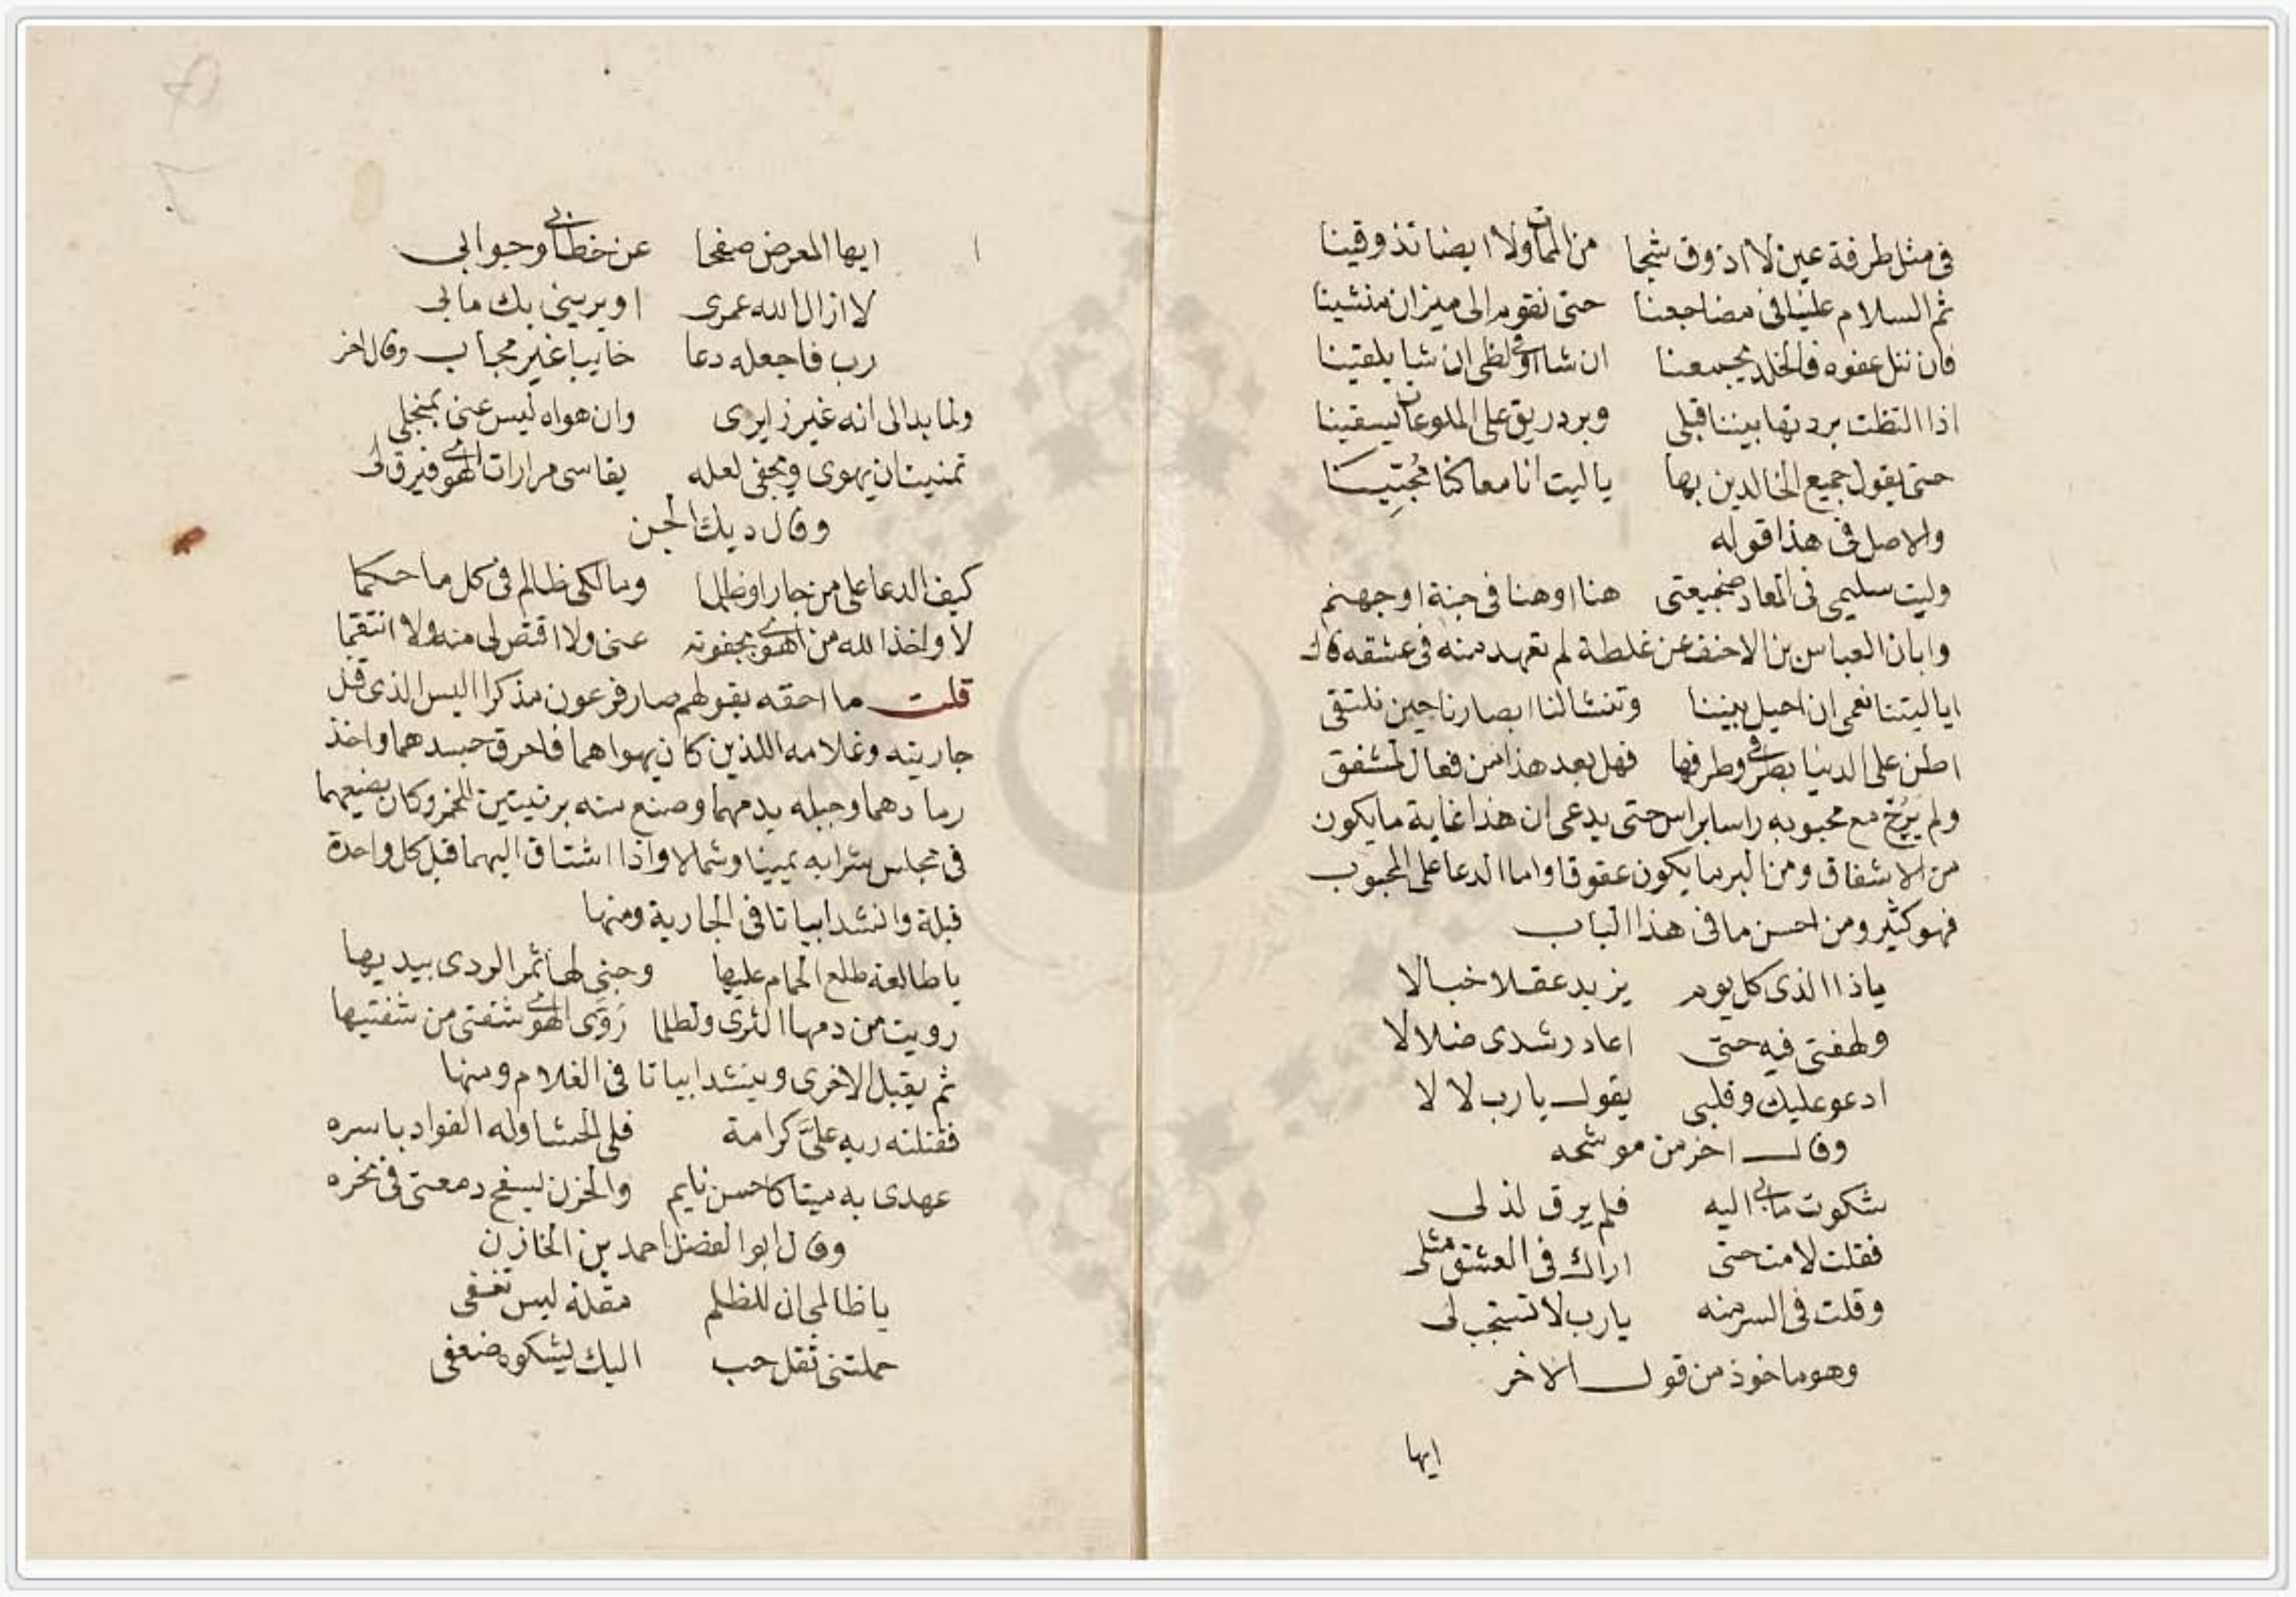 في مثل طرفة عين لا اذوق شجا من الممات ولا ايضا تذوقينا
ثم السلام علينا في مضاجعنا حتى نقوم الى ميزان منشينا
فان ننل عفوه فالخلد يجمعنا ان شا او في لظى ان شا يلقينا
اذا التظت بردتها بيننا قبلى وبرد ريق على الملوعات يسقينا
حتى يقول جميع الخالدين بها يا ليت انا معا كنا مُحِبّينا
والاصل في هذا قوله
وليت سليمى في المعاد ضجيعتى هنا او هنا في جنة او جهنم
وابان العباس بن الاحنف عن غلطة لم تعهد منه في عشقه قال
ايا ليتنا نعمى ان احيل بيننا وتنشا لنا ابصارنا حين نلتقى
اضن على الدنيا بطرفي وطرفها فهل بعد هذا من فعال لمشفق
ولم يَرُح مع محبوبه راسا براس حتى يدعى ان هذا غاية ما يكون
من الاشفاق ومن البر ما يكون عقوقا واما الدعا على المحبوب
فهو كثير ومن احسن ما في هذا الباب
ياذا الذى كل يوم يزيد عقلا خبالا
ولهفتى فيه حتى اعاد رشدى ضلالا
ادعو عليك وقلبى يقول يا رب لا لا
وقال اخر من موشحه
شكوت ما بي اليه فلم يرق لذلى
فقلت لا مت حتى اراك في العشق مثلى
وقلت في السر منه يارب لا تستجب لى
وهو ماخوذ من قول الاخر
ايها
ايها المعرض صفحا عن خطابي وجوابى
لا ازال الله عمرى او يرينى بك مابى
رب فاجعله دعا خايبا غير مجاب وقال اخر
ولما بدا لى انه غير زايرى وان هواه ليس عنى بمنجلى
تمنيت ان يهوى ويجفى لعله يقاسى مرارات الهوى فيرق لى
وقال ديك الجن
كيف الدعا على من جار او ظلما ومالكى ظالم في كل ما حكما
لا واخذ الله من اهوى بجفوته عنى ولا اقتص لى منه ولا انتقما
قلت ما احقه بقولهم صار فرعون مذكرا اليس الذى قتل
جاريته وغلامه اللذين كان يهواهما فاحرق جسدهما واخذ
رمادهما وجبله بدمهما وصنع منه برنيتين للخمر وكان يضعهما
في مجلس شرابه يمينا وشمالا واذا اشتاق اليهما قبل كل واحدة
قبلة وانشد ابياتا في الجارية ومنها
يا طالعة طلع الحمام عليها وجنى لها ثمر الردى بيديها
رويت من دمها الثرى ولطالما رَوَّى الهوى شفتى من شفتيها
ثم يقبل الاخرى وينشد ابياتا في الغلام ومنها
فقتلته وبه علىَّ كرامة فلى الحشا وله الفواد باسره
عهدى به ميتا كاحسن نايم والحزن يسفح دمعتى في نحره
وقال ابو الفضل احمد بن الخازن
يا ظالمى ان للظلم مقلة ليس تغفى
حملتنى ثقل حب اليك يشكوه ضعفى